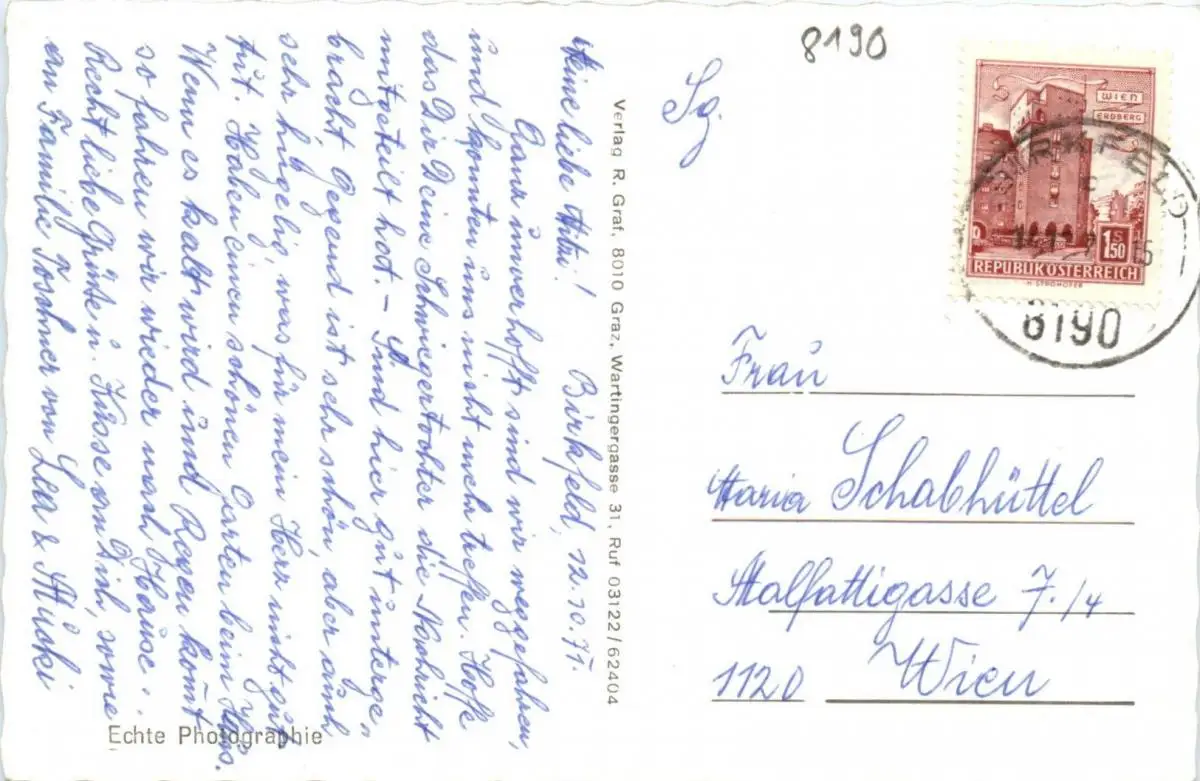 8190
Sg.
WIEN
ERDBERG
S
1.50
REPUBLIK ÖSTERREICH
H. STROHOFER
BIRKFELD
8190
Meine liebe Mitzi! Birkfeld, 12.10.71.
Ganz unverhofft sind wir weggefahren,
und konnten uns nicht mehr treffen. Hoffe
das Dir Deine Schwiegertochter die Nachricht
mitgeteilt hat. – Sind hier gut unterge-
bracht. Gegend ist sehr schön, aber auch
sehr hügelig, was für mein Herz nicht gut
tut. Haben einen schönen Garten beim Haus.
Wenn es kalt wird und Regen komt
so fahren wir wieder nach Hause.
Recht liebe Grüße u. Küsse an Dich, sowie
an Familie von Lea &
Verlag R. Graf, 8010 Graz, Wartingergasse 31, Ruf 03122/62404
Frau
Maria Schabhüttel
Malfattigasse 7./4
1120 Wien
Echte Photographie